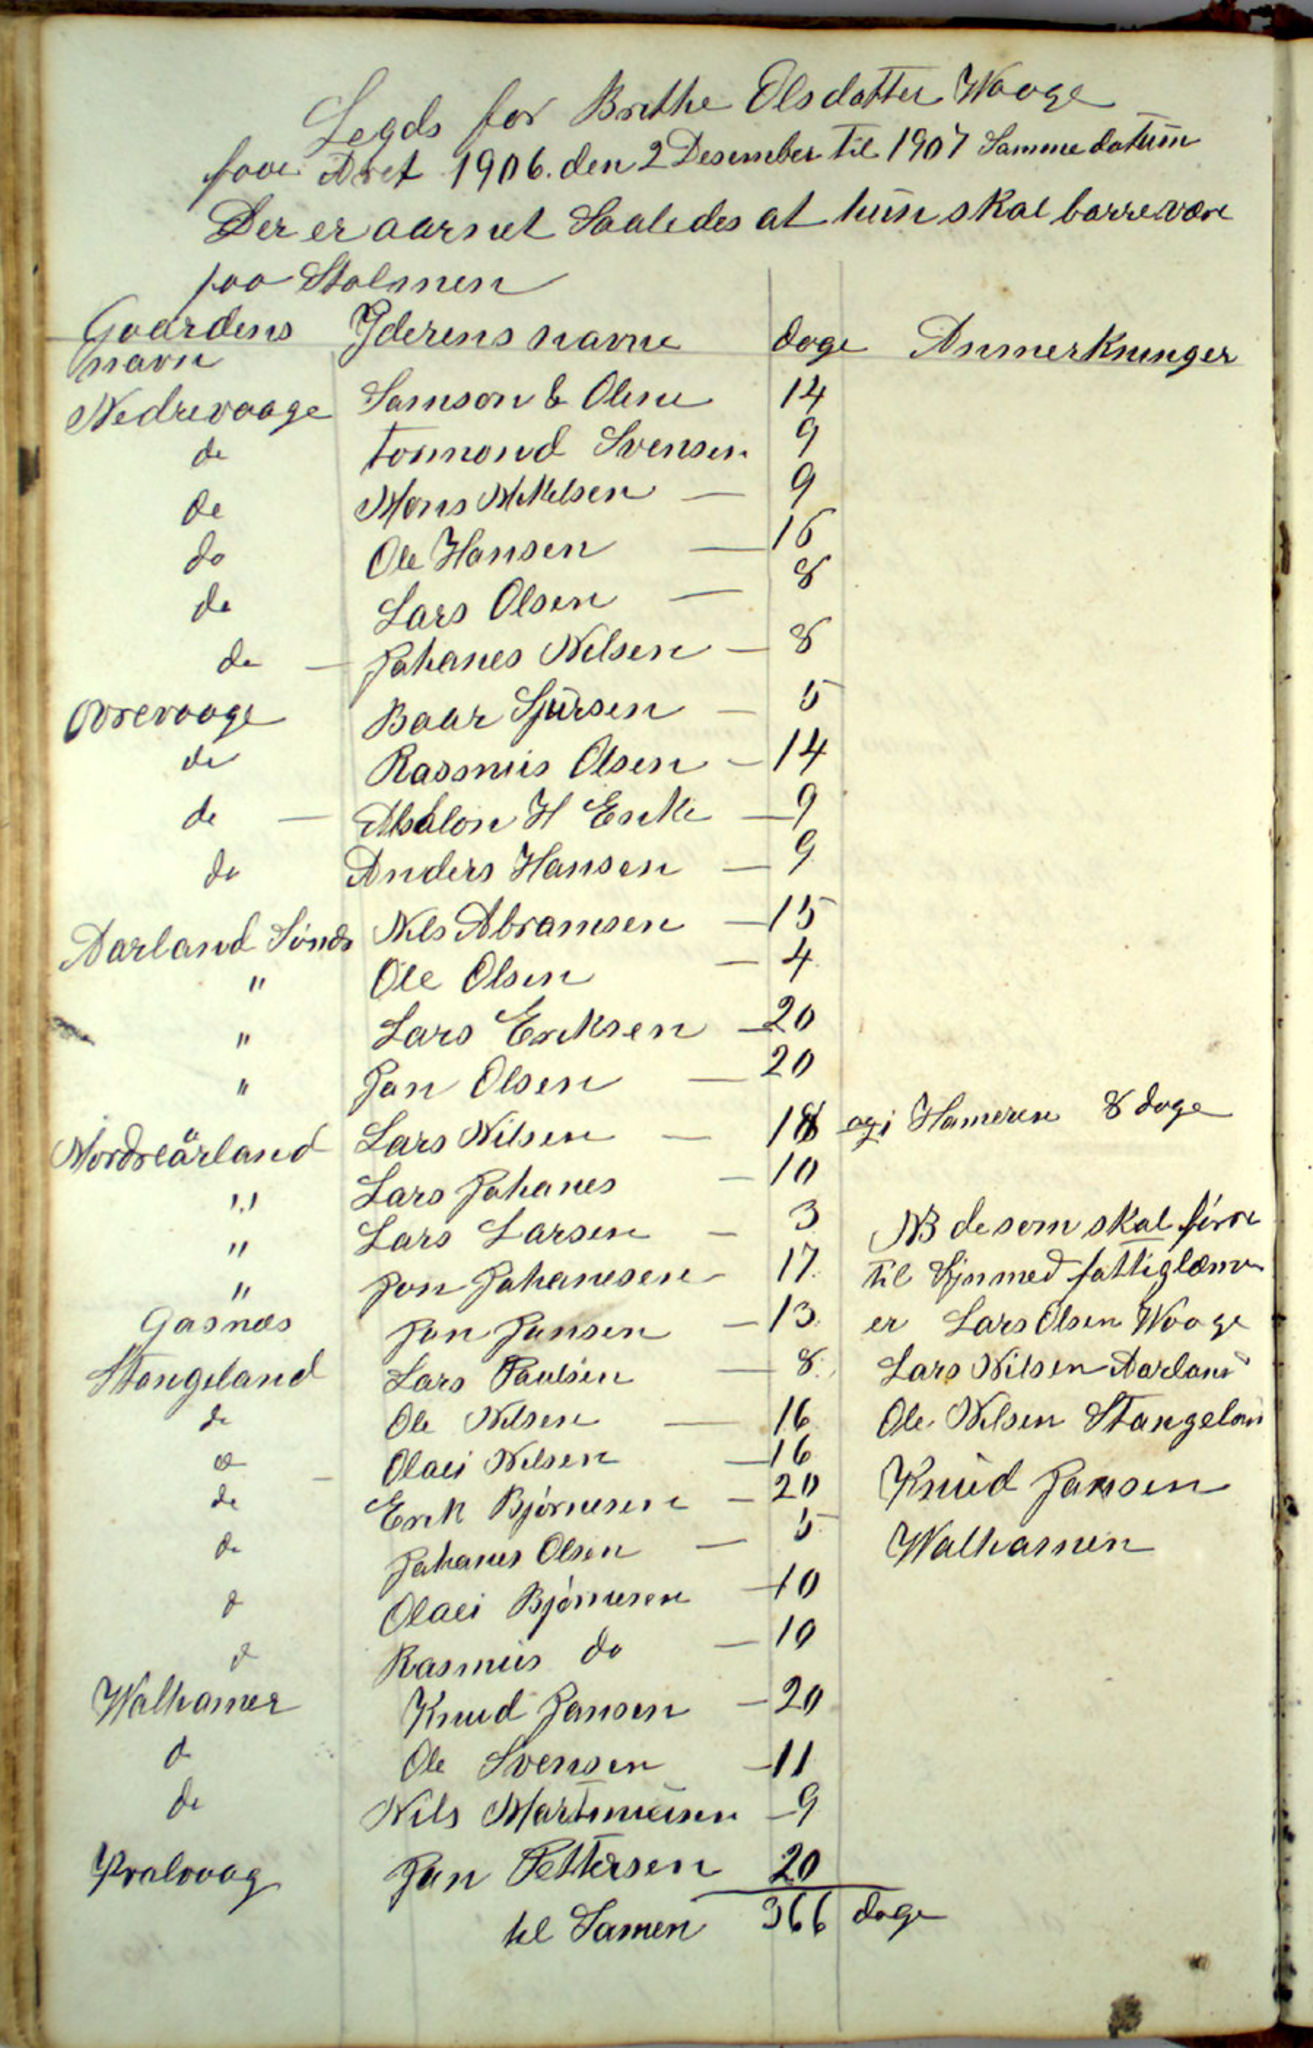 Legds for Brithe Olsdatter Waage
fove Aret 1906. den 2 Desember Til 1907 Samme datum
Der er aarnet Saaledes at hun skal barre være
paa Stolmen
Gaardens navn Yderens navne dage Anmerkninger
Nedrevaage Samson & Olene 14
do Tormond Svensen 9
do Mons Mikkelsen — 9
do Ole Hansen — 16
do Lars Olsen — 8
do — Johanes Nilsen — 8
Øvrevaage Baar Sjursen — 5
do Rasmus Olsen — 14
do — Absalon H Erike — 9
do Anders Hansen — 9
Aarland Sondr Nils Abramsen — 15
" Ole Olsen — 4
" Lars Eriksen — 20
" Jan Olsen — 20
Nordreårland Lars Nilsen — 18 og i Hameren 8 dage
" Lars Johanes — 10
" Lars Larsen — 3 NB de som skal føre
" Jon Johanesen — 17 til Syn med fattiglæmer
Gasnæs Jan Jansen — 13 er Lars Olsen Waage
Stangeland Lars Paulsen — 8 Lars Nilsen Aarland
do Ole Nilsen — 16 Ole Nilsen Stangelan
do — Olai Nilsen — 16
do Erik Bjørnesen — 20 Knud Jansen
do Johanes Olsen — 5 Walhamen
do Olai Bjørnesen — 10
do Rasmus do — 10
Walhamer Knud Jansen — 20
do Ole Svensen — 11
do Nils Martinusen — 9
Kvalvaag Jan Pettersen 20
til Samen 366 dage